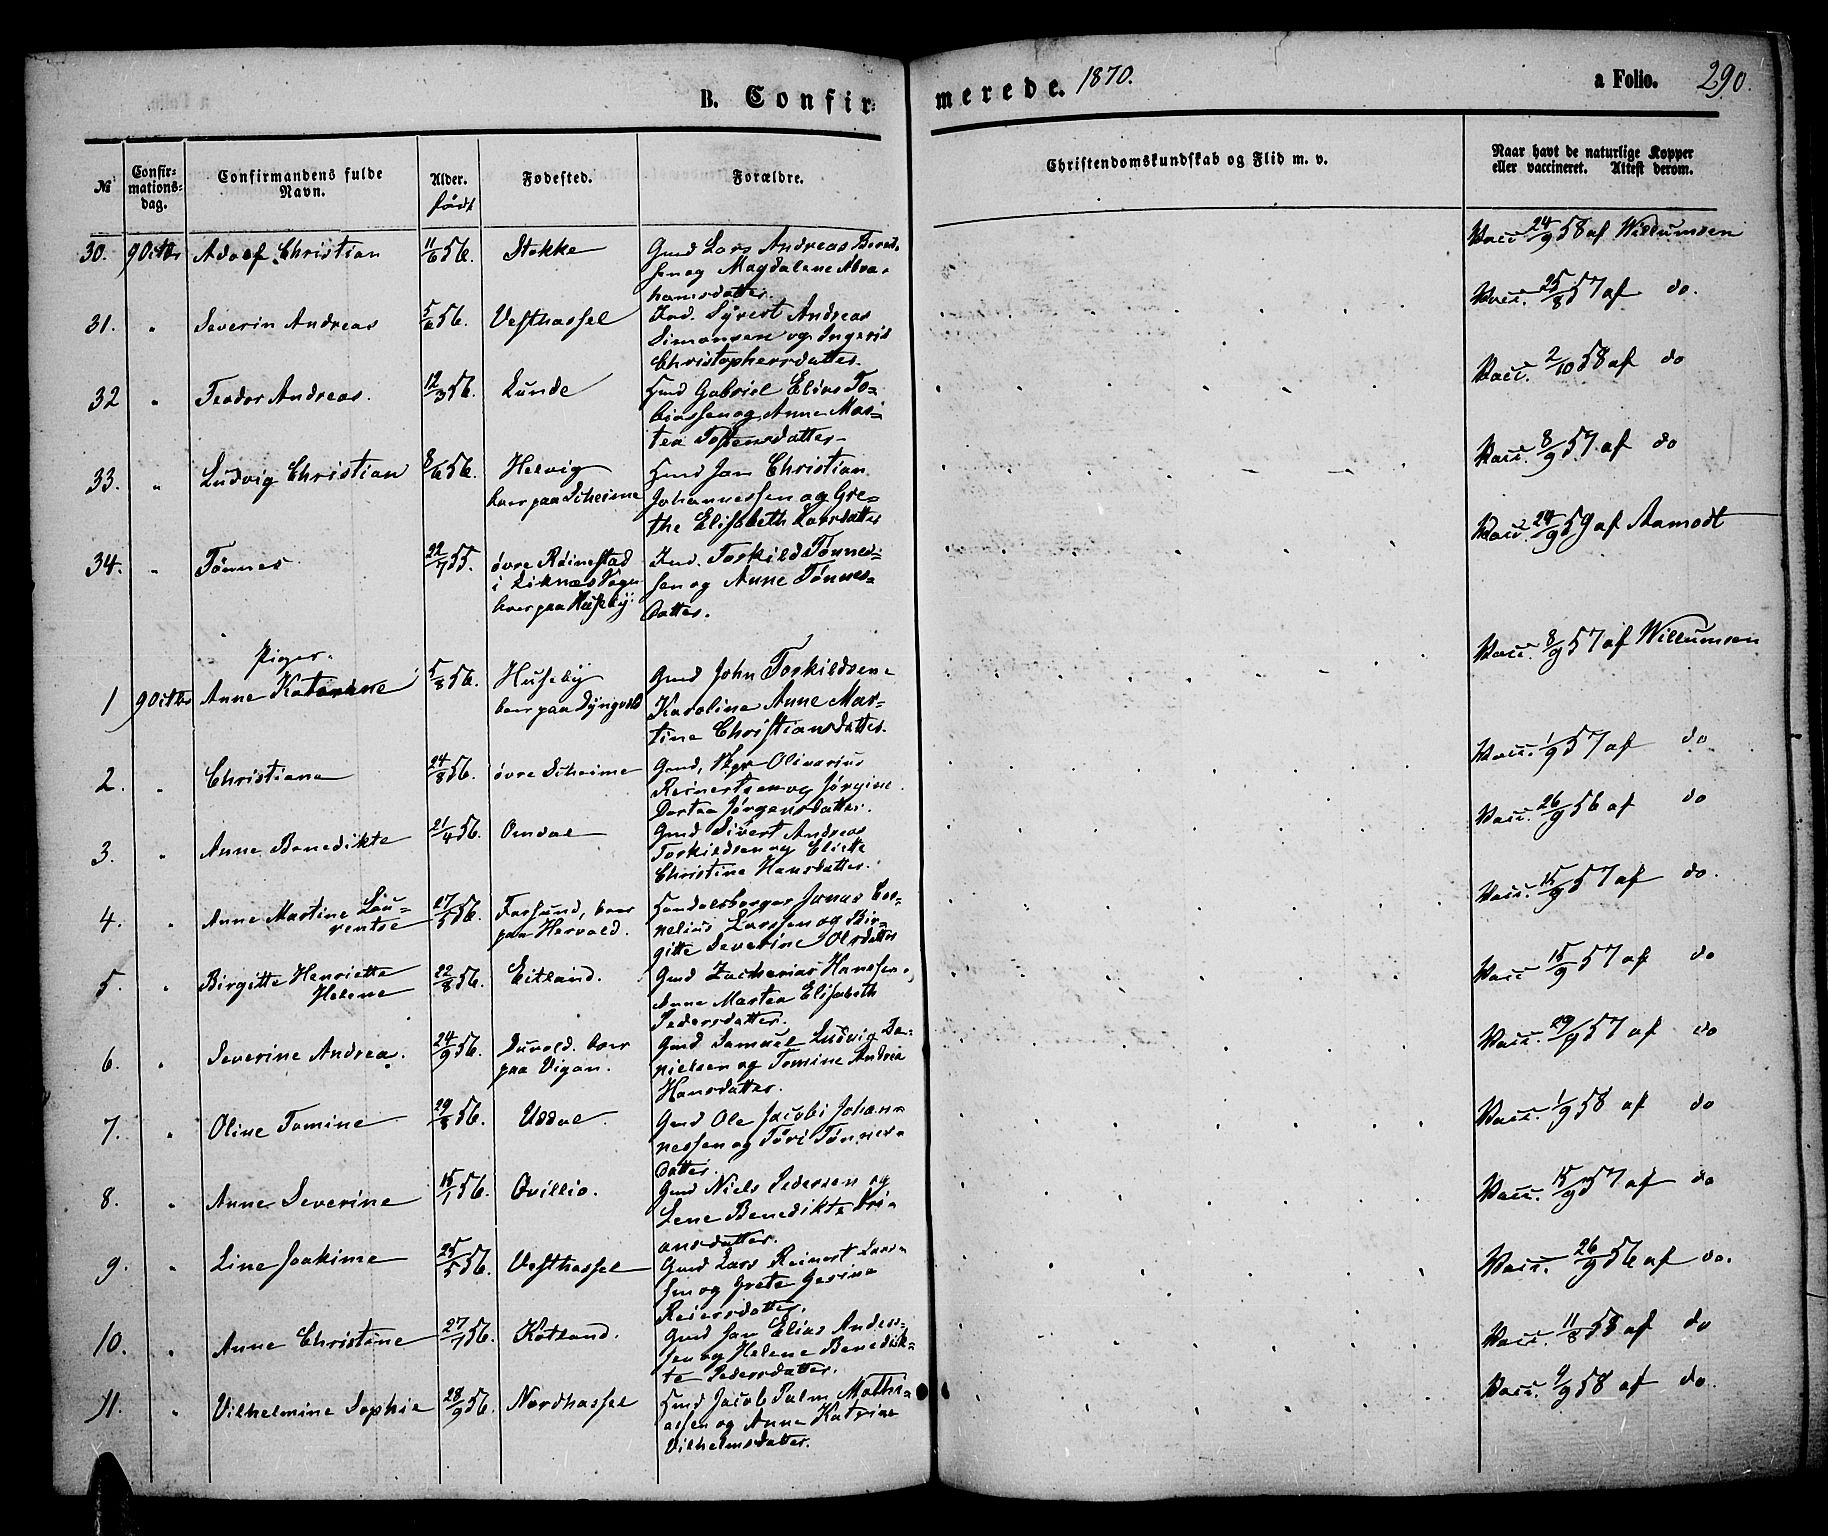 B. Confir-
merede. 1870.
a Folio. 290.
№
Confir-
mations-
dag.
Confirmandens fulde
Navn.
Alder.
født
Fødested.
Forældre.
Christendomskundskab og Flid m. v.
Naar havt de naturlige Kopper
eller vaccineret. Attest derom.
30. 9 Octbr Adolf Christian 11/6 56. Stokke Gmd Lars Andreas Bernt-
sen og Magdalene Abra-
hamsdatter.
Vacc 24/9 58 af Willumsen
31. " Severin Andreas 5/6 56. Vesthassel Ind. Syvert Andreas
Simonsen og Ingerid
Christophersdatter.
Vacc. 25/8 57 af do.
32 " Teodor Andreas. 12/3 56. Lunde Hmd Gabriel Elias To-
biassen og Anne Mar-
tea Tostensdatter
Vacc. 2/10 58 af do
33. " Ludvig Christian 8/6 56. Hervig
boer paa Scheime Hmd Jan Christian
Johannessen og Gre-
the Elisabeth Larsdatter
Vacc. 8/9 57. af do
34. " Tønnes 22/7 55. øvre Røinestad
i Liknæs Sogn
boer paa Huseby. Ind. Torkild Tønnes-
sen og Anne Tønnes-
datter.
Vacc 24/9 59 af Aamodt
Piger.
1 9 Octbr Anne Katarine 5/8 56. Huseby
boer paa Dyngvold Gmd John Torkildsen
Karoline Anne Mar-
tine Christiansdatter.
Vacc. 8/9 57 af Willumsen
2. " Christiane 24/8 56. øvre Scheime Gmd, Olivarius
Reinertsen og Jørgine
Dortea Jørgensdatter.
Vacc. 1/9 57 af do
3. " Anne Benedikte 21/4 56. Omdal Gmd Sivert Andreas
Torkildsen og Eliette
Christine Hansdatter.
Vacc. 26/9 56 af do
4. " Anne Martine Lau-
rentse 27/5 56. Farsund, boer
paa Hervold. Handelsborger Jonas Cor-
nelius Larssen og Bir-
gitte Severine Olsdatter
Vacc. 15/9 57 af do.
5. " Birgitte Henriette
Helene 22/8 56. Eitland. Gmd Zacharias Hanssen,
Anne Martea Elisabeth
Pedersdatter.
Vacc 15/9 57 af do
6. " Severine Andrea. 24/9 56. Duvold. boer
paa Vigan. Gmd Samuel Ludvig Da-
nielsen og Tomine Andrea
Hansdatter.
Vacc. 29/9 57 af do
7. " Oline Tomine 29/8 56. Uddal. Gmd Ole Jacobi Johan-
nessen og Tøri Tønnes-
datter.
Vacc. 1/9 58 af do
8. " Anne Severine 15/1 56. Ovillio. Gmd Niels Pedersen og
Lene Benedikte Bri-
ansdatter.
Vacc. 15/9 57 af do
9. " Line Joakime 25/5 56. Vesthassel Gmd Lars Reinert Lars-
sen og Grete Gesine
Reiersdatter.
Vacc. 26/9 56 af do.
10. " Anne Christine 27/7 56. Kotland. Gmd Jan Elias Anders-
sen og Helene Benedik-
te Pedersdatter.
Vacc. 11/8 58 af do
11. " Vilhelmine Sophie 28/9 56. Nordhassel Hmd Jacob Palm Mathi-
assen og Anne Katrine
Vilhelmsdatter.
Vacc. 9/9 58 af do.